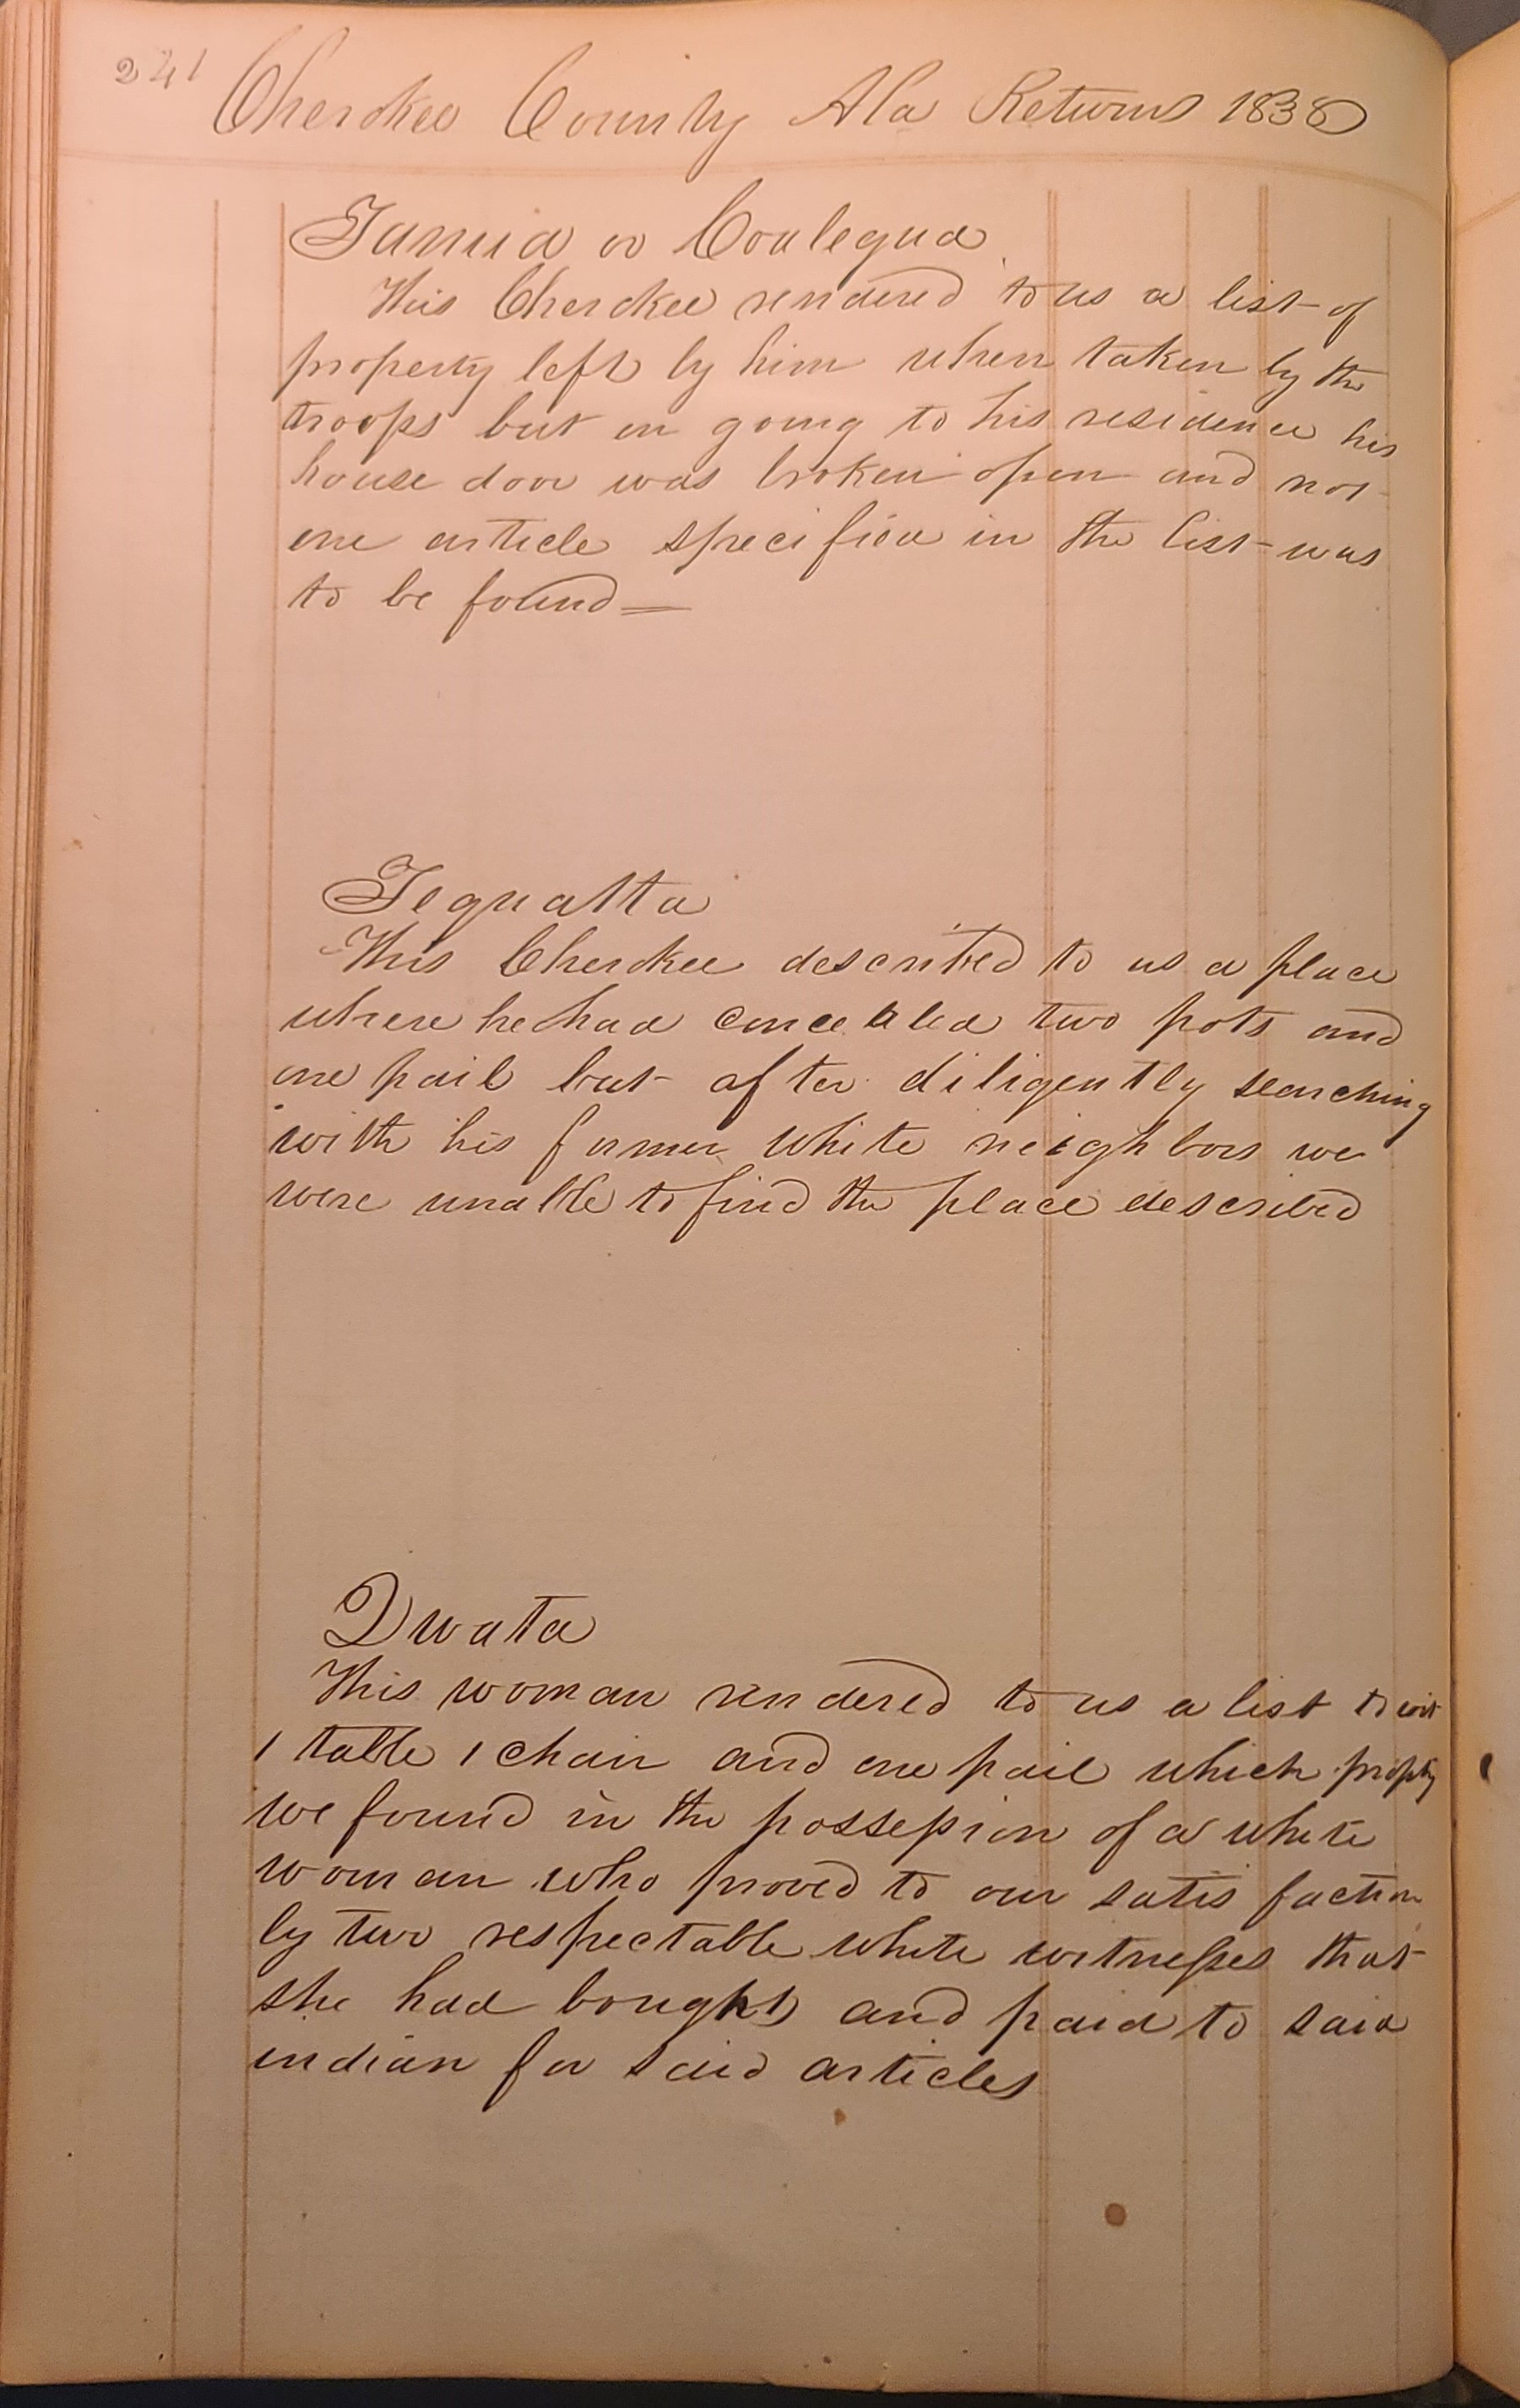 241
Cherokee County Ala Returns 1838
Tanna or Coalequa
This Cherokee rendered to us a list of
property left by him when taken by the
troops but on going to his residence his
house door was broken open and not
one article specified in the list was
to be found
Tequatta
This Cherokee described to us a place
where he had concealed two pots and
one pail but after diligently searching
with his former white neighbors we
were unable to find the place described
Dwata
This woman rendered to us a list to wit
1 table 1 chair and one pail which propty
we found in the possession of a white
woman who proved to our satisfaction
by two respectable white witnesses that
she had bought and paid to said
indian for said articles